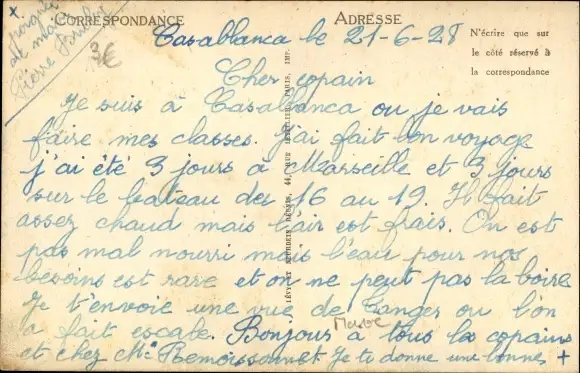 CORRESPONDANCE
ADRESSE
N'écrire que sur
le côté réservé à
la correspondance
Casablanca le 21-6-28
Cher copain
Je suis à Casablanca ou je vais
faire mes classes. J'ai fait bon voyage
j'ai été 3 jours à Marseille et 3 jours
sur le bateau du 16 au 19. Il fait
assez chaud mais l'air est frais. On est
pas mal nourri mais l'eau pour nos
besoins est rare et on ne peut pas la boire
Je t'envoie une vue de Tanger ou l'on
a fait escale. Bonjour à tous les copains
et chez Mr Remoissonnet Je te donne une bonne +
+ poignée
de main
Pierre
3€
Maroc
LÉVY ET NEURDEIN RÉUNIS, 44, RUE LETELLIER, PARIS, IMP.